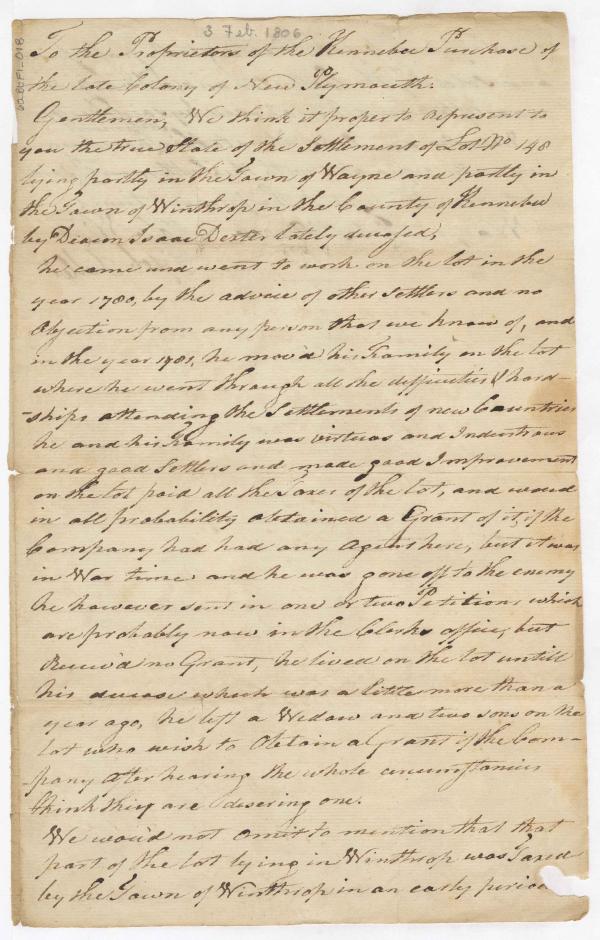 3 Feb. 1806
To the Proprietors of the Kennebec Purchase of
the late Colony of New Plymouth.
Gentlemen, We think it proper to represent to
you the true State of the Settlement of Lot No 148
lying partly in the Town of Wayne and partly in
the Town of Winthrop in the County of Kennebec
by Deacon Isaac Dexter lately deceased,
he came and went to work on the lot in the
year 1780, by the advice of other Settlers and no
Objection from any person that we know of, and
in the year 1781, he mov'd his Family on the lot
where he went through all the difficulties & hard-
-ships attending the Settlements of new Countries
he and his Family was virtuas and Industrous
and good Settlers and made good Improvement
on the lot paid all the Taxes of the lot, and would
in all probability obtained a Grant of it, if the
Company had had any Agent here, but it was
in War time and he was gone off to the enemy
he however sent in one or two Petitions which
are probably now in the Clerks office, but
Receiv'd no Grant, he lived on the lot untill
his decease which was a little more than a
year ago, he left a Wedow and two sons on the
lot who wish to Obtain a Grant if the Com-
-pany after hearing the whole circumstances
think they are desering one.
We would not omit to mention that that
part of the lot lying in Winthrop was Taxed
by the Town of Winthrop in an early period